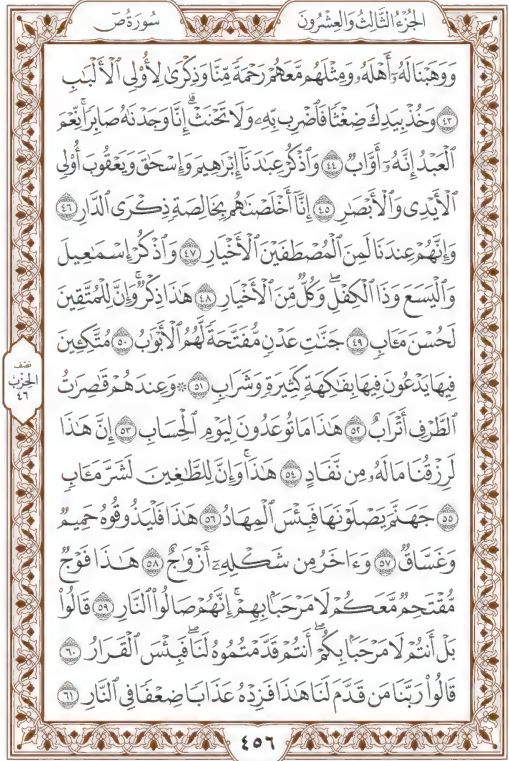 الجزء الثالث والعشرون سورة ص
وَوَهَبْنَا لَهُۥٓ أَهْلَهُۥ وَمِثْلَهُم مَّعَهُمْ رَحْمَةً مِّنَّا وَذِكْرَىٰ لِأُو۟لِى ٱلْأَلْبَٰبِ
٤٣ وَخُذْ بِيَدِكَ ضِغْثًا فَٱضْرِب بِّهِۦ وَلَا تَحْنَثْ ۗ إِنَّا وَجَدْنَٰهُ صَابِرًا ۚ نِّعْمَ
ٱلْعَبْدُ ۖ إِنَّهُۥٓ أَوَّابٌ ٤٤ وَٱذْكُرْ عِبَٰدَنَآ إِبْرَٰهِيمَ وَإِسْحَٰقَ وَيَعْقُوبَ أُو۟لِى
ٱلْأَيْدِى وَٱلْأَبْصَٰرِ ٤٥ إِنَّآ أَخْلَصْنَٰهُم بِخَالِصَةٍ ذِكْرَى ٱلدَّارِ ٤٦
وَإِنَّهُمْ عِندَنَا لَمِنَ ٱلْمُصْطَفَيْنَ ٱلْأَخْيَارِ ٤٧ وَٱذْكُرْ إِسْمَٰعِيلَ
وَٱلْيَسَعَ وَذَا ٱلْكِفْلِ ۖ وَكُلٌّ مِّنَ ٱلْأَخْيَارِ ٤٨ هَٰذَا ذِكْرٌ ۚ وَإِنَّ لِلْمُتَّقِينَ
لَحُسْنَ مَـَٔابٍ ٤٩ جَنَّٰتِ عَدْنٍ مُّفَتَّحَةً لَّهُمُ ٱلْأَبْوَٰبُ ٥٠ مُتَّكِـِٔينَ
فِيهَا يَدْعُونَ فِيهَا بِفَٰكِهَةٍ كَثِيرَةٍ وَشَرَابٍ ٥١ ۞ وَعِندَهُمْ قَٰصِرَٰتُ
ٱلطَّرْفِ أَتْرَابٌ ٥٢ هَٰذَا مَا تُوعَدُونَ لِيَوْمِ ٱلْحِسَابِ ٥٣ إِنَّ هَٰذَا
لَرِزْقُنَا مَا لَهُۥ مِن نَّفَادٍ ٥٤ هَٰذَا ۚ وَإِنَّ لِلطَّٰغِينَ لَشَرَّ مَـَٔابٍ
٥٥ جَهَنَّمَ يَصْلَوْنَهَا فَبِئْسَ ٱلْمِهَادُ ٥٦ هَٰذَا فَلْيَذُوقُوهُ حَمِيمٌ
وَغَسَّاقٌ ٥٧ وَءَاخَرُ مِن شَكْلِهِۦٓ أَزْوَٰجٌ ٥٨ هَٰذَا فَوْجٌ
مُّقْتَحِمٌ مَّعَكُمْ ۖ لَا مَرْحَبًۢا بِهِمْ ۚ إِنَّهُمْ صَالُوا۟ ٱلنَّارِ ٥٩ قَالُوا۟
بَلْ أَنتُمْ لَا مَرْحَبًۢا بِكُمْ ۖ أَنتُمْ قَدَّمْتُمُوهُ لَنَا ۖ فَبِئْسَ ٱلْقَرَارُ ٦٠
قَالُوا۟ رَبَّنَا مَن قَدَّمَ لَنَا هَٰذَا فَزِدْهُ عَذَابًا ضِعْفًا فِى ٱلنَّارِ ٦١
نصف
الحزب
٤٦
٤٥٦